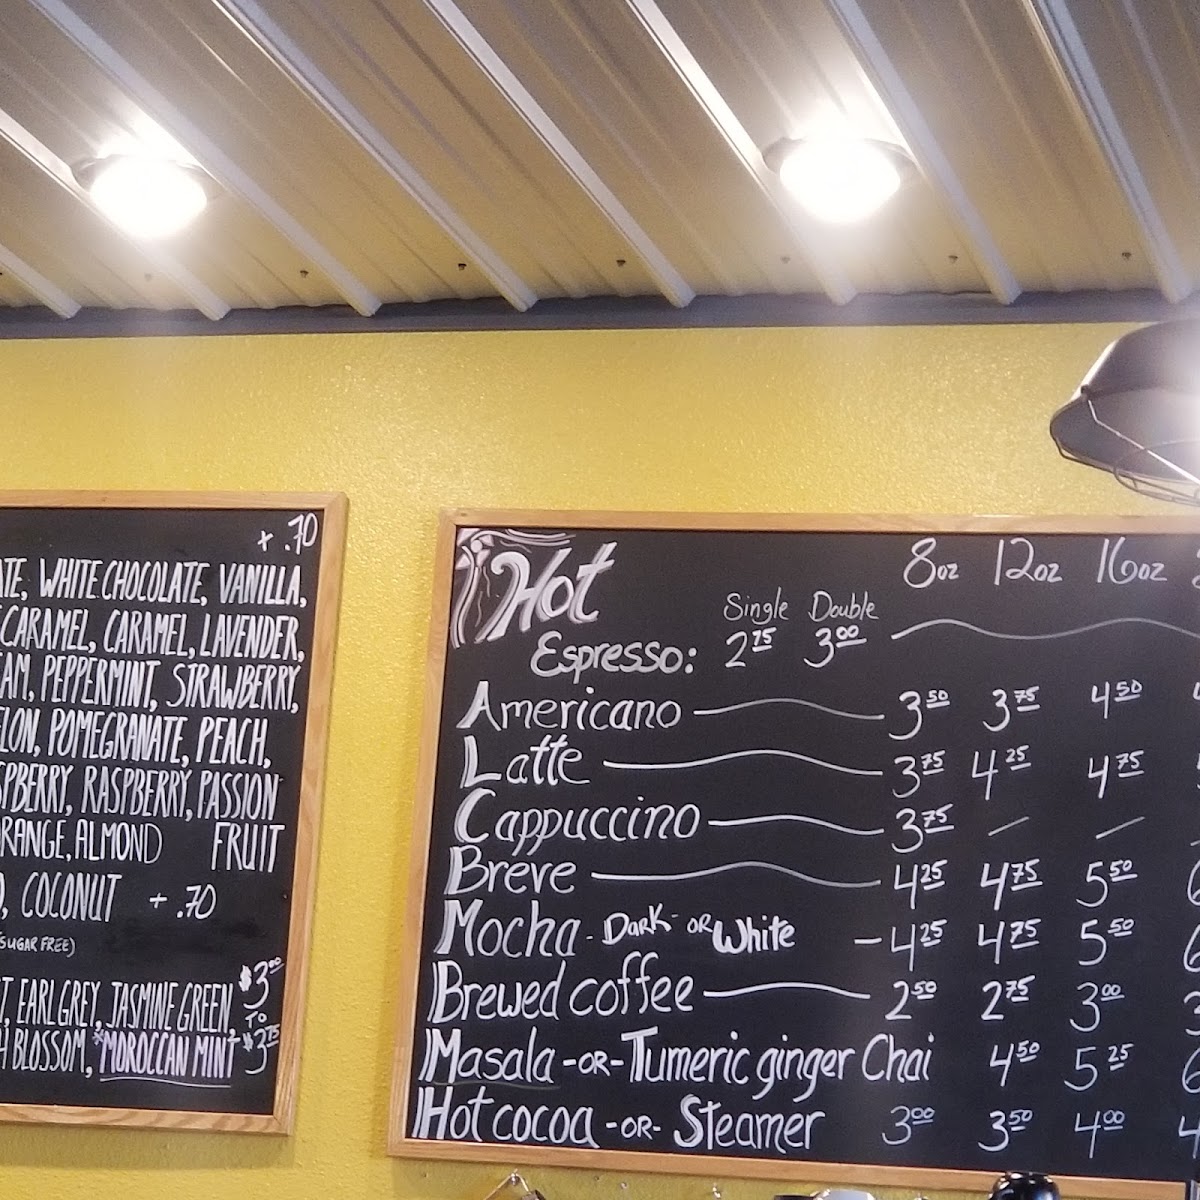 + .70
WHITE CHOCOLATE, VANILLA,
CARAMEL, CARAMEL, LAVENDER,
PEPPERMINT, STRAWBERRY,
POMEGRANATE, PEACH,
RASPBERRY, PASSION
ALMOND FRUIT
COCONUT + .70
(SUGAR FREE)
EARL GREY, JASMINE GREEN, $3.00
TO
BLOSSOM, *MOROCCAN MINT $3.75
Hot 8oz 12oz 16oz
Single Double
Espresso: 2.75 3.00
Americano 3.50 3.75 4.50
Latte 3.75 4.25 4.75
Cappuccino 3.75 — —
Breve 4.25 4.75 5.50
Mocha - Dark - or White - 4.25 4.75 5.50
Brewed coffee 2.50 2.75 3.00
Masala -OR- Tumeric ginger Chai 4.50 5.25
Hot cocoa -OR- Steamer 3.00 3.50 4.00